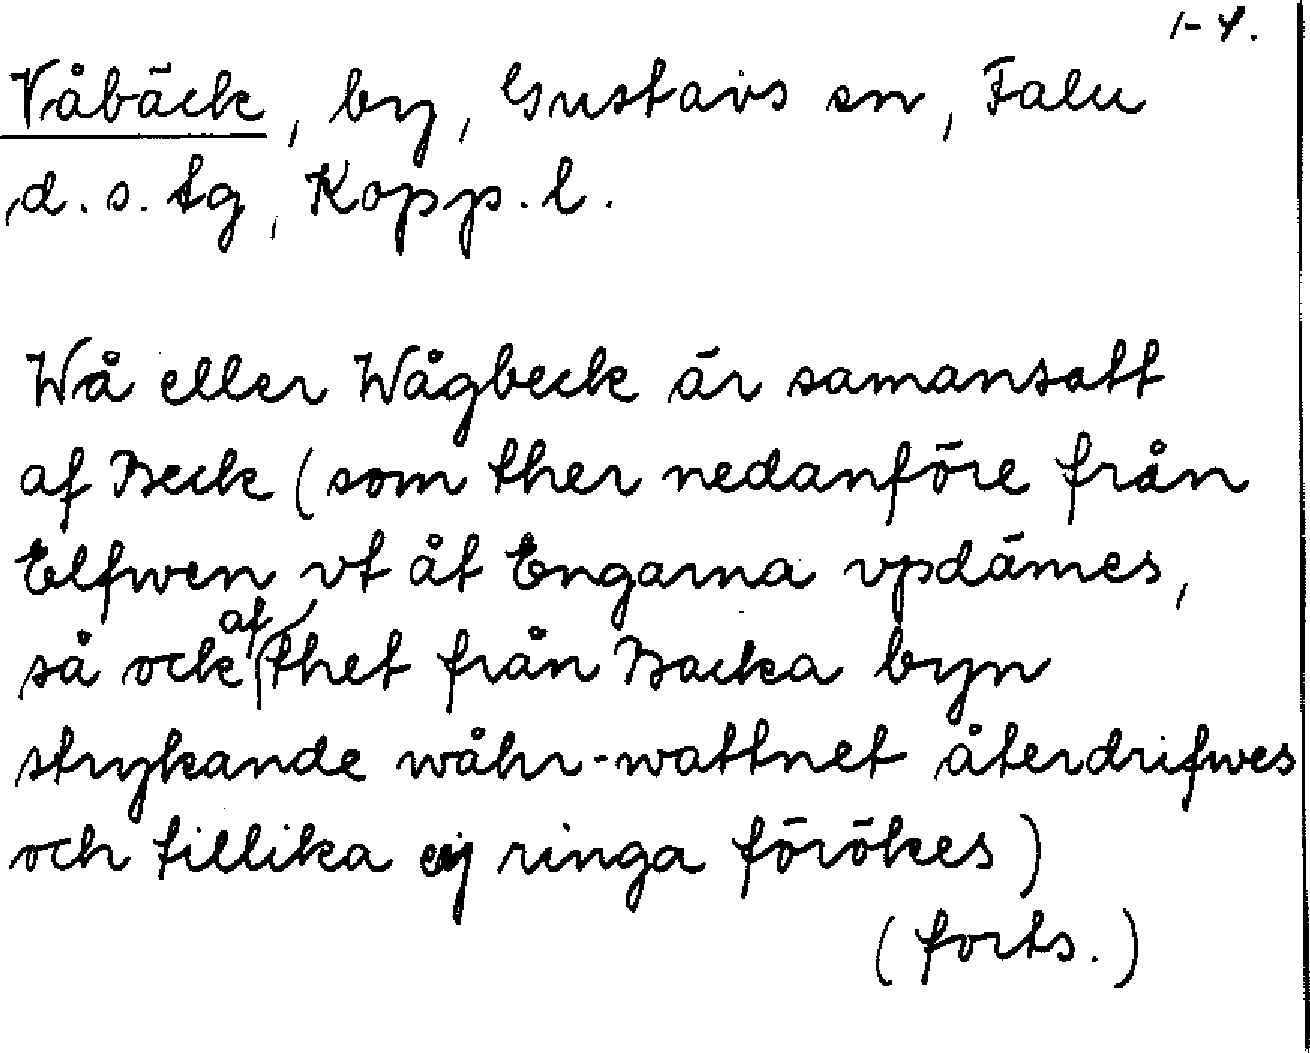 1-4.
Våbäck, by, Gustavs sn, Falu
d. s. tg, Kopp. l.
Wå eller Wågbeck är samansatt
af Beck (som ther nedanföre från
Elfwen vt åt Engarna vpdämes,
så ock af thet från Backa byn
strykande wåhr-wattnet återdrifwes
och tillika ej ringa förökes)
(forts.)